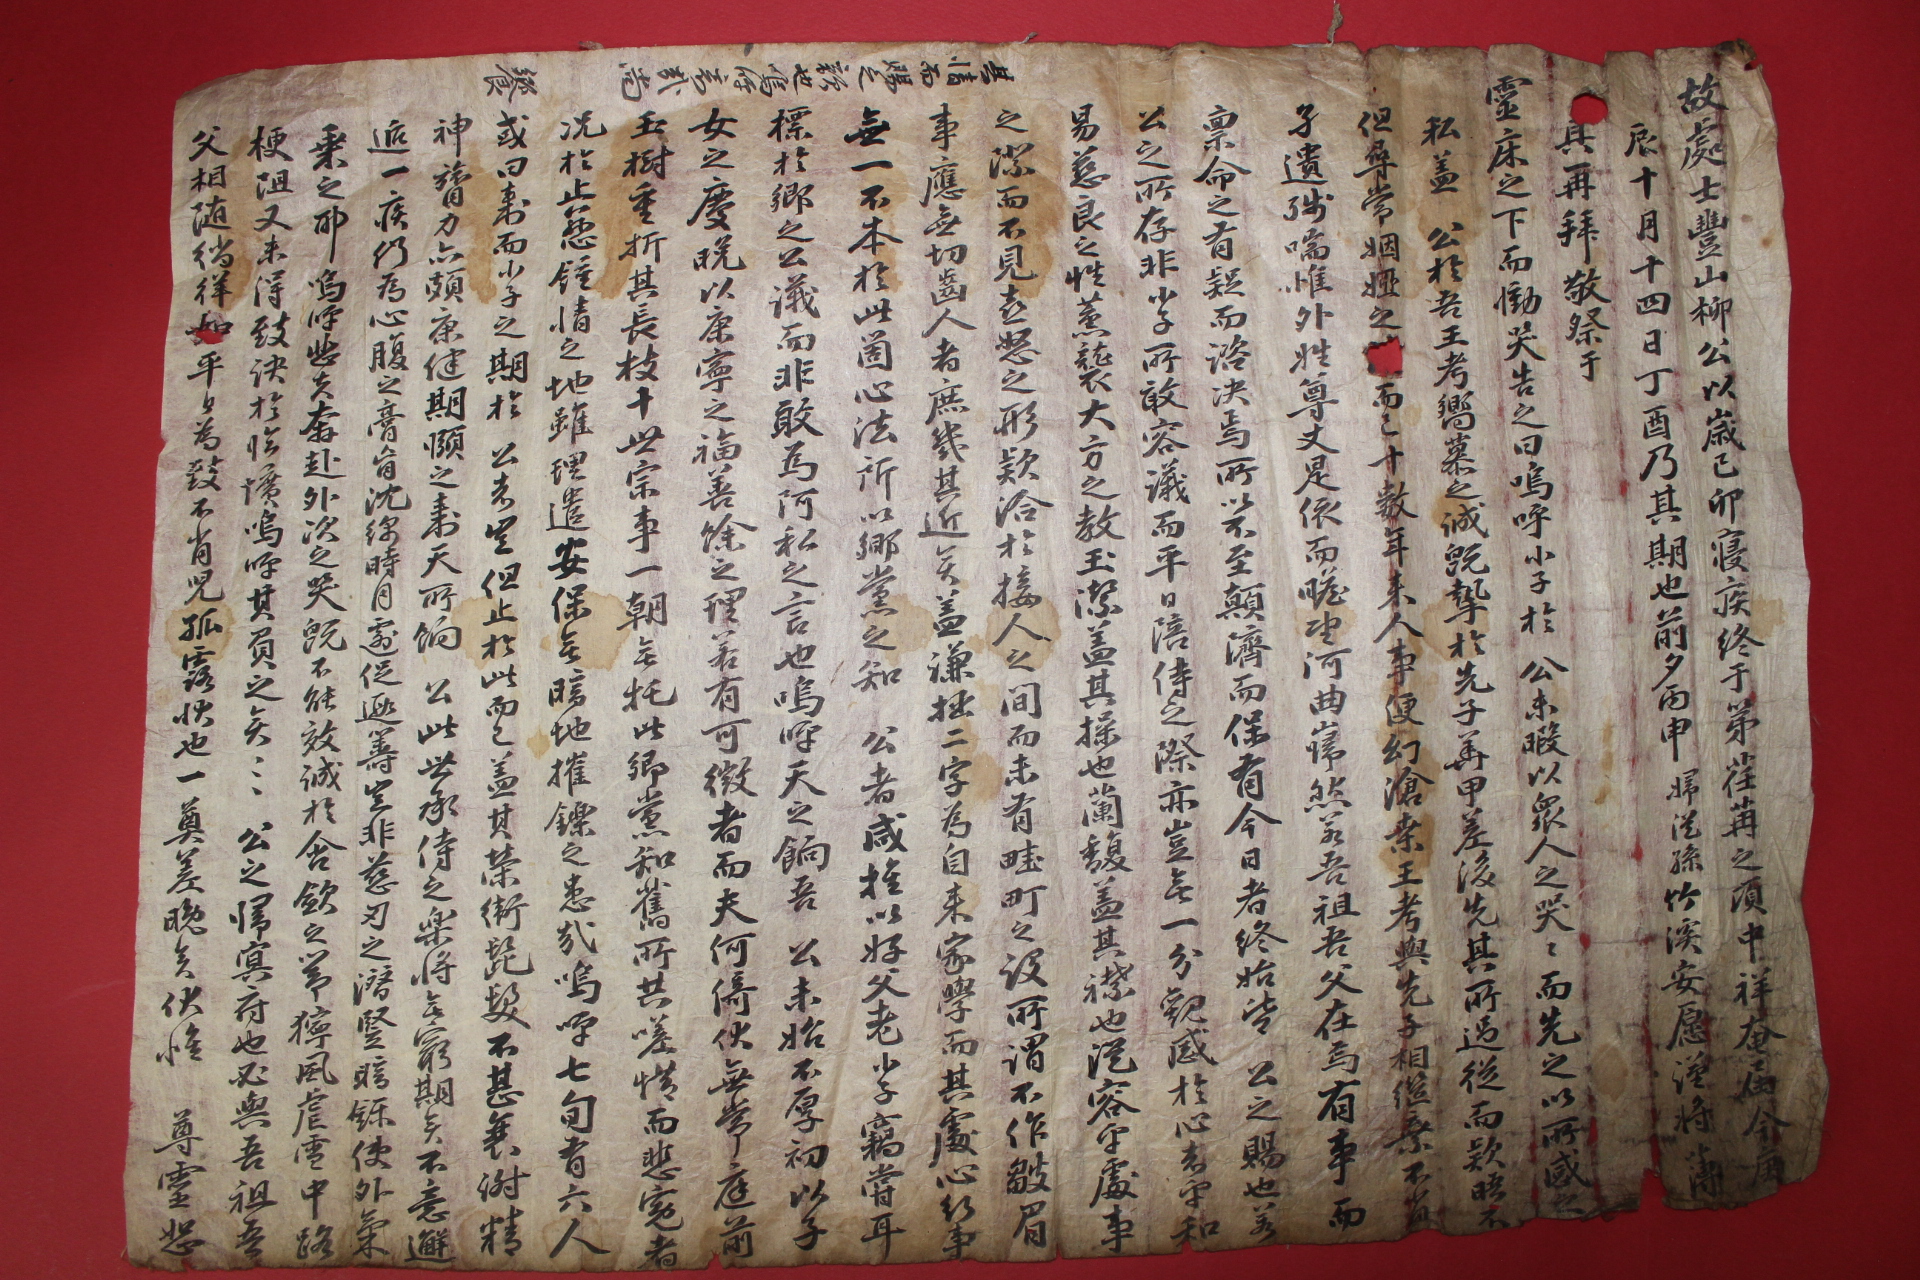 故處士豐山柳公以歲己卯寢疾終于第荏苒之頃中祥奄届今庚
辰十月十四日丁酉乃其期也前夕丙申婦從孫竹溪安愿謹將薄
具再拜敬祭于
靈床之下而慟哭告之曰嗚呼小子於 公未暇以衆人之哭〻而先之以所感之
私盖 公於吾王考嚮慕之誠旣摯於先子再甲差後先其所過從而款晤不
但尋常姻婭之 而已十數年來人事便幻滄桑王考與先子相繼棄不肖
子遺孱喘惟外姓尊丈是依而瞻望河曲巋然若吾祖吾父在焉有事而
稟命之有疑而諮決焉所以不至顚濟而保有今日者終始皆 公之賜也若
公之所存非小子所敢容議而平日陪侍之際亦豈無一分觀感於心者乎和
易慈良之性薰襲大方之敎玉潔盖其操也蘭馥盖其襟也從容乎處事
之際而不見忿怒之形款洽於接人之間而未有畦町之設所謂不作皺眉
事應無切齒人者庶幾其近矣盖謙拙二字爲自來家學而其處心行事
無一不本於此箇心法所以鄕黨之知 公者咸推以好父老小子竊嘗耳
標於鄕之公議而非敢爲阿私之言也嗚呼天之餉吾 公未始不厚初以子
女之慶晩以康寧之福善餘之理若有可徵者而夫何倚伏無常庭前
玉樹重折其長枝十世宗事一朝無托此鄕黨知舊所共嗟惜而悲寃者
况於止慈鍾情之地雖理遣安保無暗地摧鑠之患哉嗚呼七旬有六人
或曰壽而小子之期於 公者豈但止於此而已盖其榮衛髭髮不甚衰謝精
神膂力亦頗康健期頤之壽天所餉 公此世承侍之樂將無窮期矣不意邂
逅一疾仍爲心腹之膏肓沈綿時月遽促遐籌豈非慈刃之潛竪暗鑠使外氣
乘之耶 嗚呼逝矣奔赴外次之哭旣不能效誠於含斂之常獰風虐雪中路
梗阻又未得致訣於臨壙嗚呼其負之矣〻〻 公之歸冥府也必與吾祖吾
父相隨徜徉如平日爲致不肖兒孤露狀也一奠差晩矣伏惟 尊靈恕
其情而賜之歆也嗚呼哀哉尙
饗